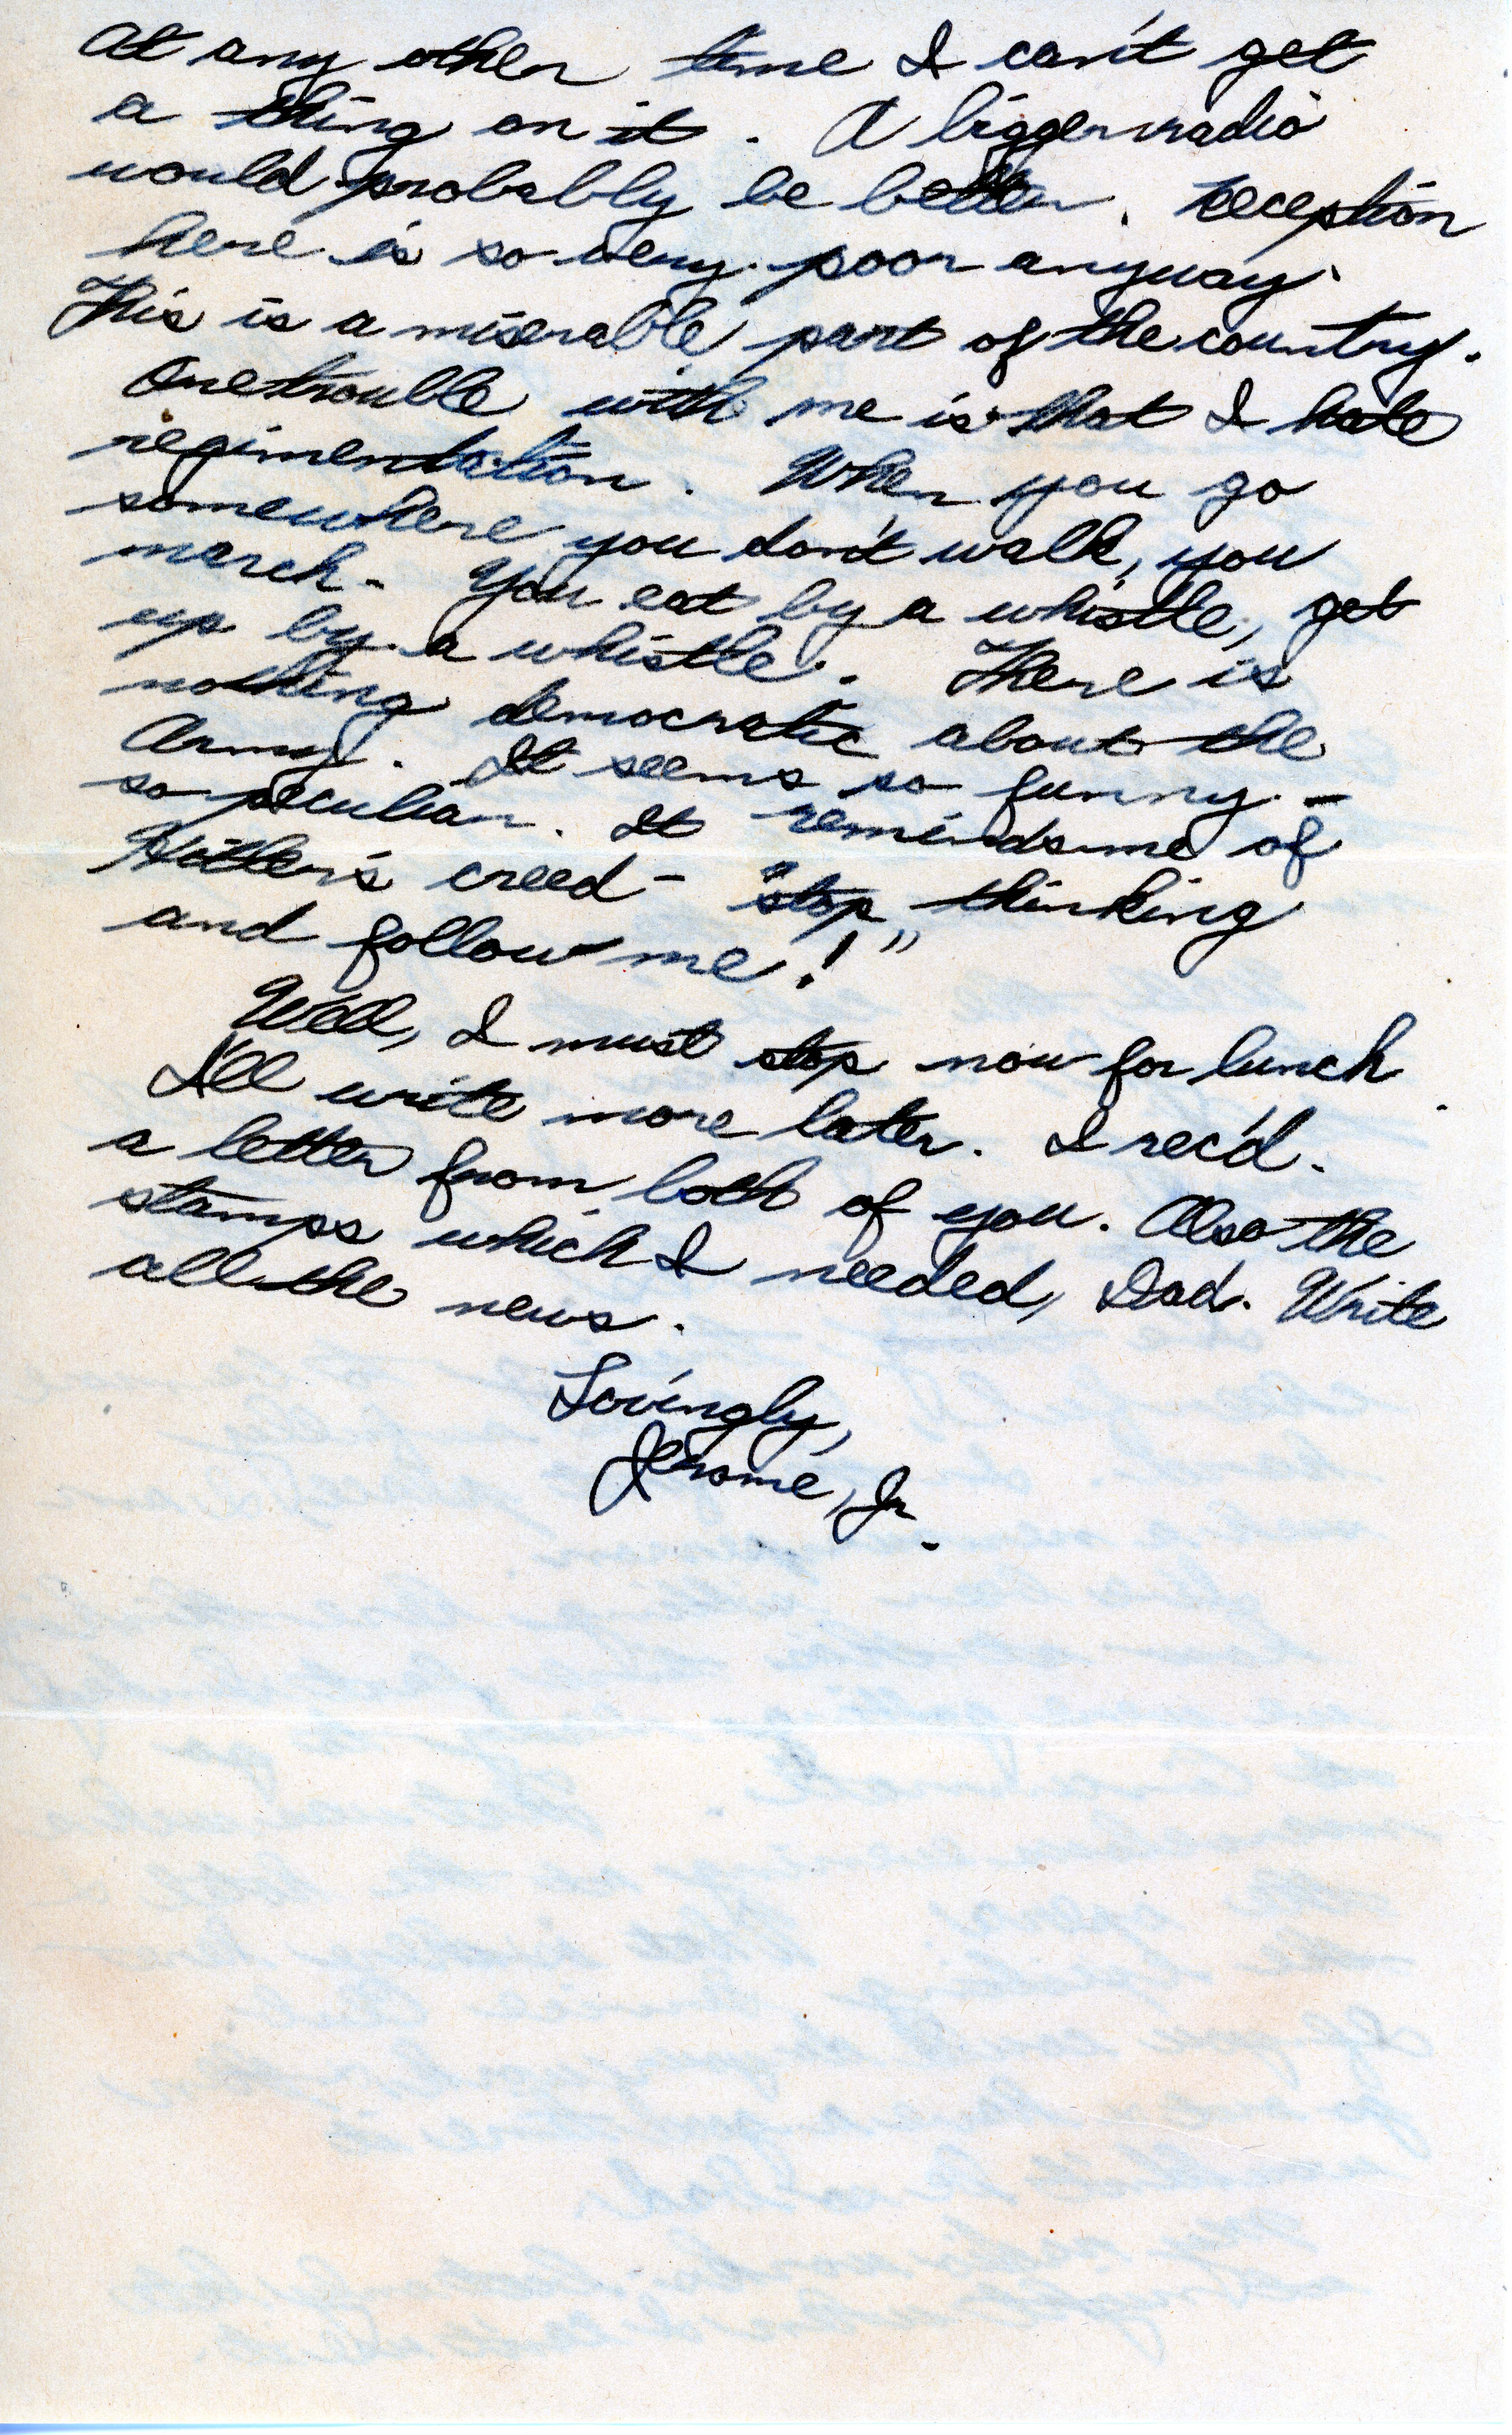 At any other time I can't get
a thing on it. A bigger radio
would probably be better. Reception
here is so very poor anyway.
This is a miserable part of the country.
One trouble with me is that I hate
regimentation. When you go
somewhere you don't walk, you
march. You eat by a whistle, get
up by a whistle. There is
nothing democratic about the
Army. It seems so funny -
so peculiar. It reminds me of
Hitler's creed - "stop thinking
and follow me!"
Well, I must stop now for lunch.
I'll write more later. I rec'd.
a letter from both of you. Also the
stamps which I needed, Dad. Write
all the news.
Lovingly,
Jerome, Jr.